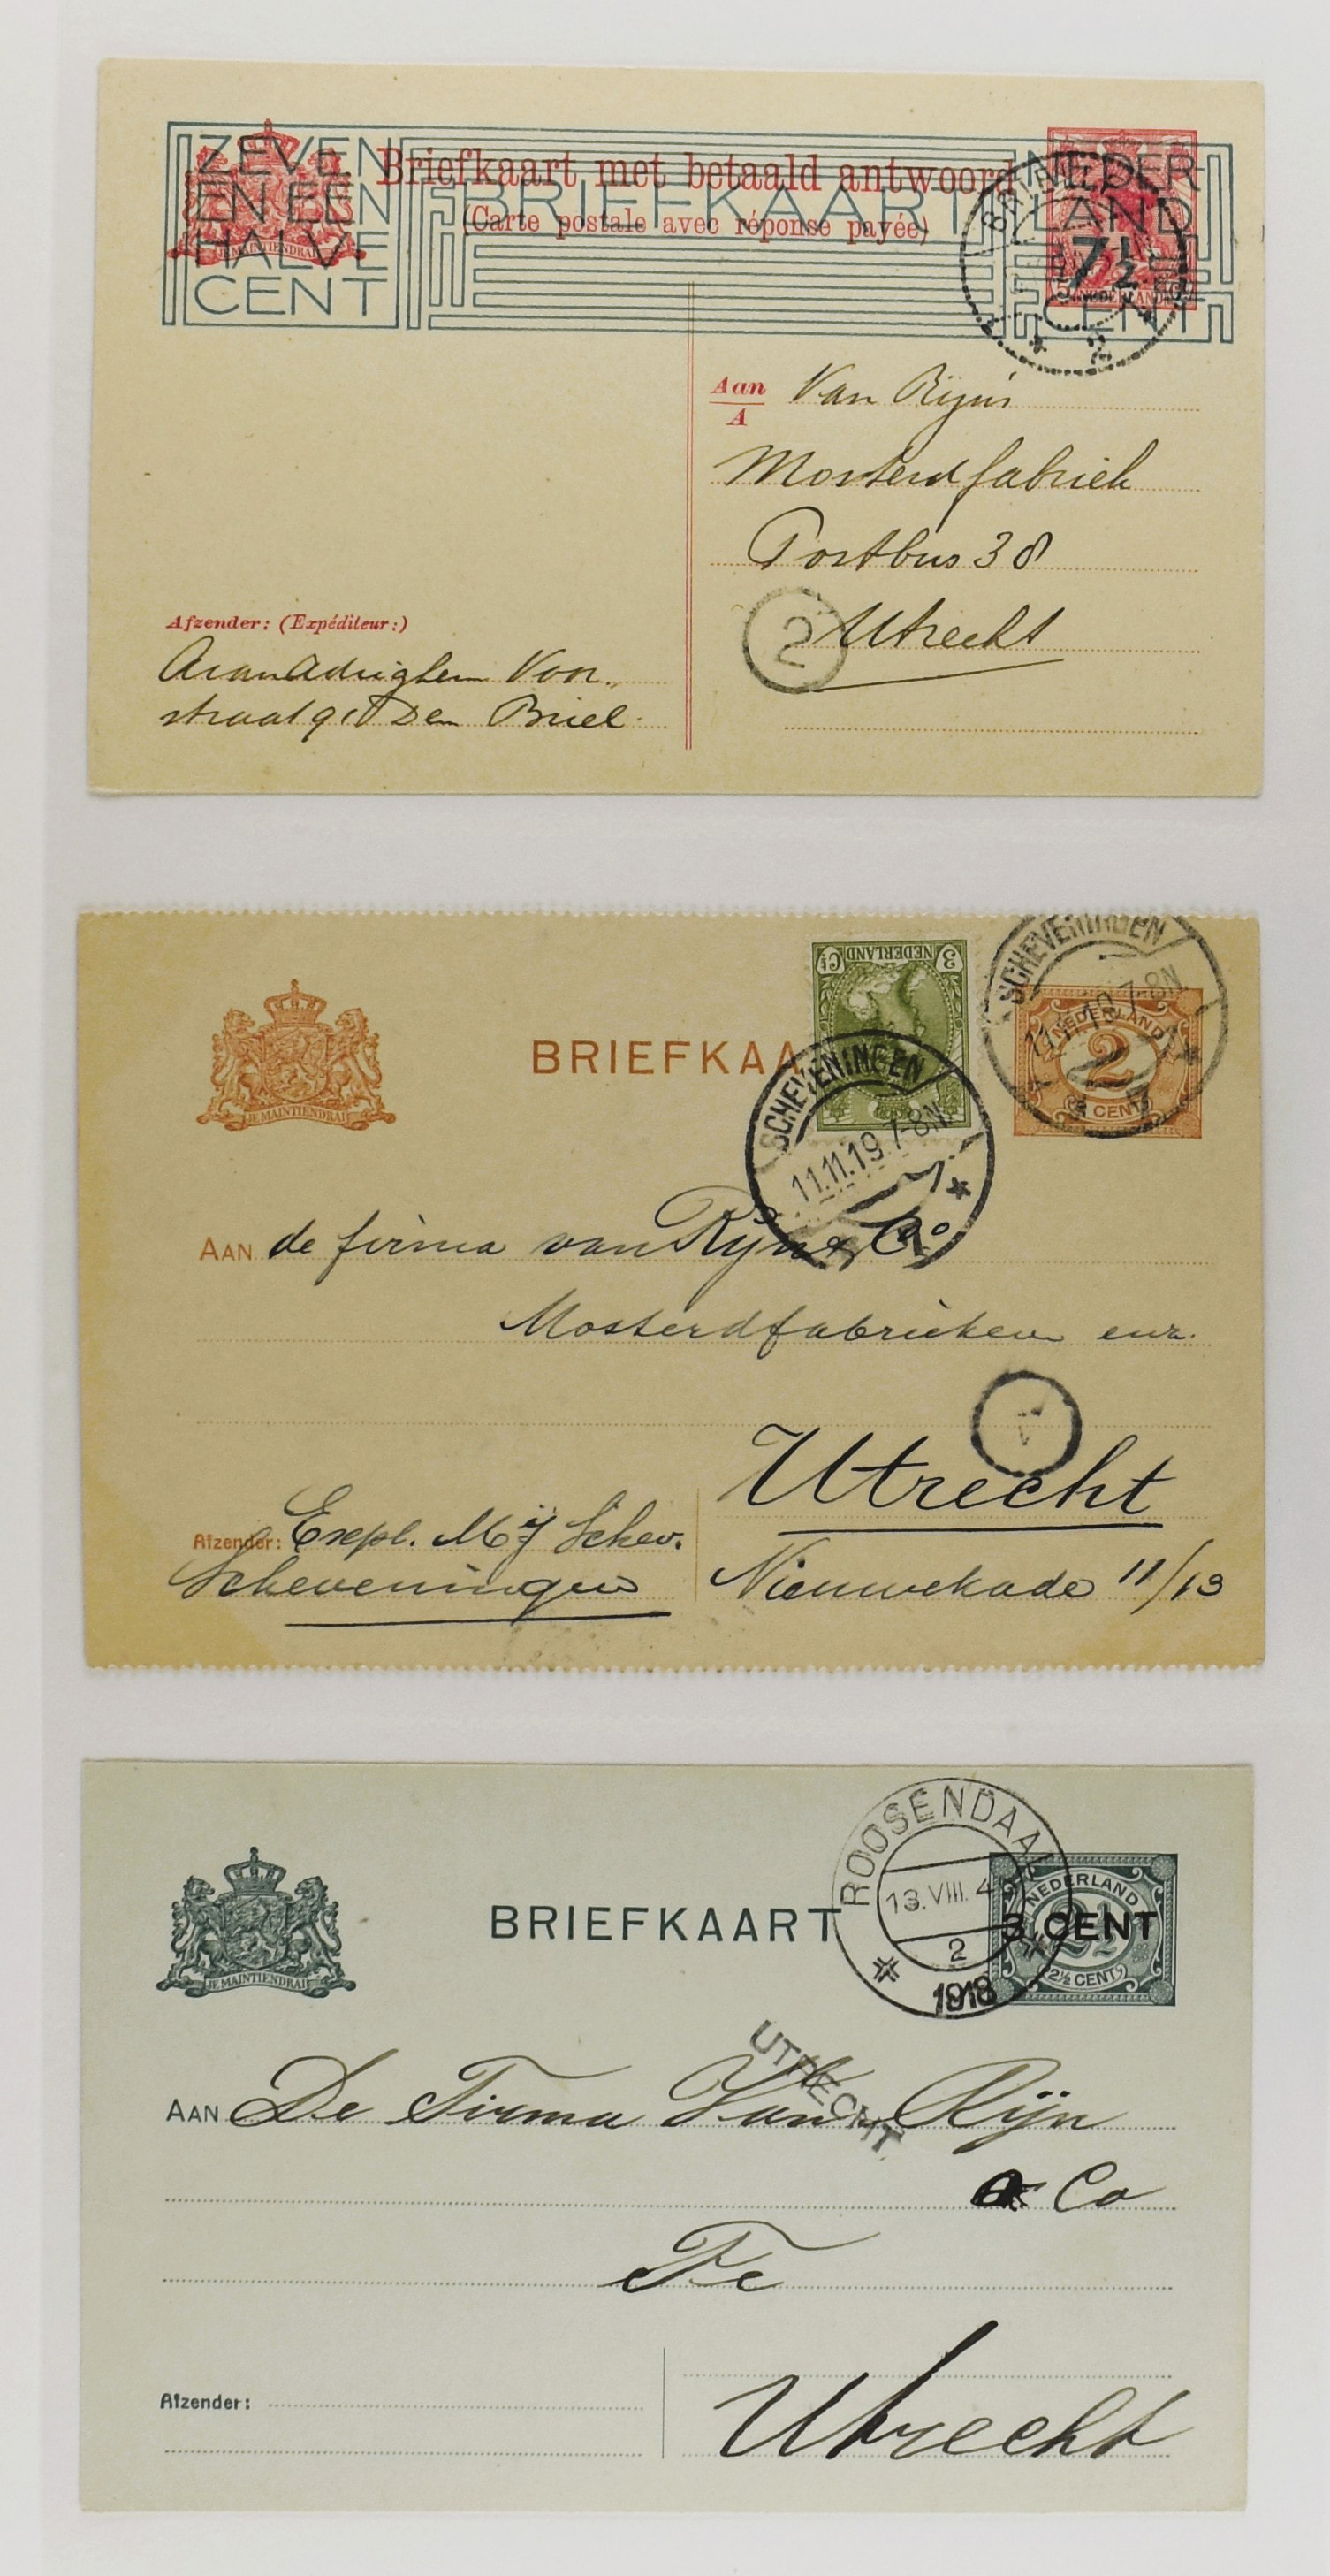 ZEVEN
EN EEN
HALVE
CENT
JE MAINTIENDRAI
Briefkaart met betaald antwoord
(Carte postale avec réponse payée)
BRIEFKAART
NEDER
LAND
7½
CENT
NEDERLAND
2
Aan
A
Van Rijn's
Mosterdfabriek
Postbus 38
Utrecht
2
Afzender: (Expéditeur:)
Voor-
straat 91 Den Briel.
JE MAINTIENDRAI
BRIEFKAA
3 Ct
NEDERLAND
SCHEVENINGEN
11.11.19.7-8N
1
SCHEVENINGEN
11.11.19.7-8N
NEDERLAND
2
CENT
AAN de firma van Rijn & Co
Mosterdfabrieken enz.
1
Utrecht
Afzender: Expl. Mij Schev.
Scheveningen
Nieuwekade 11/13
JE MAINTIENDRAI
BRIEFKAART
ROOSENDAAL
13.VIII.4
2
1918
NEDERLAND
3 CENT
2½
(2½ CENT)
UTRECHT
AAN De Firma Van Rijn
& Co
Te
Utrecht
Afzender: